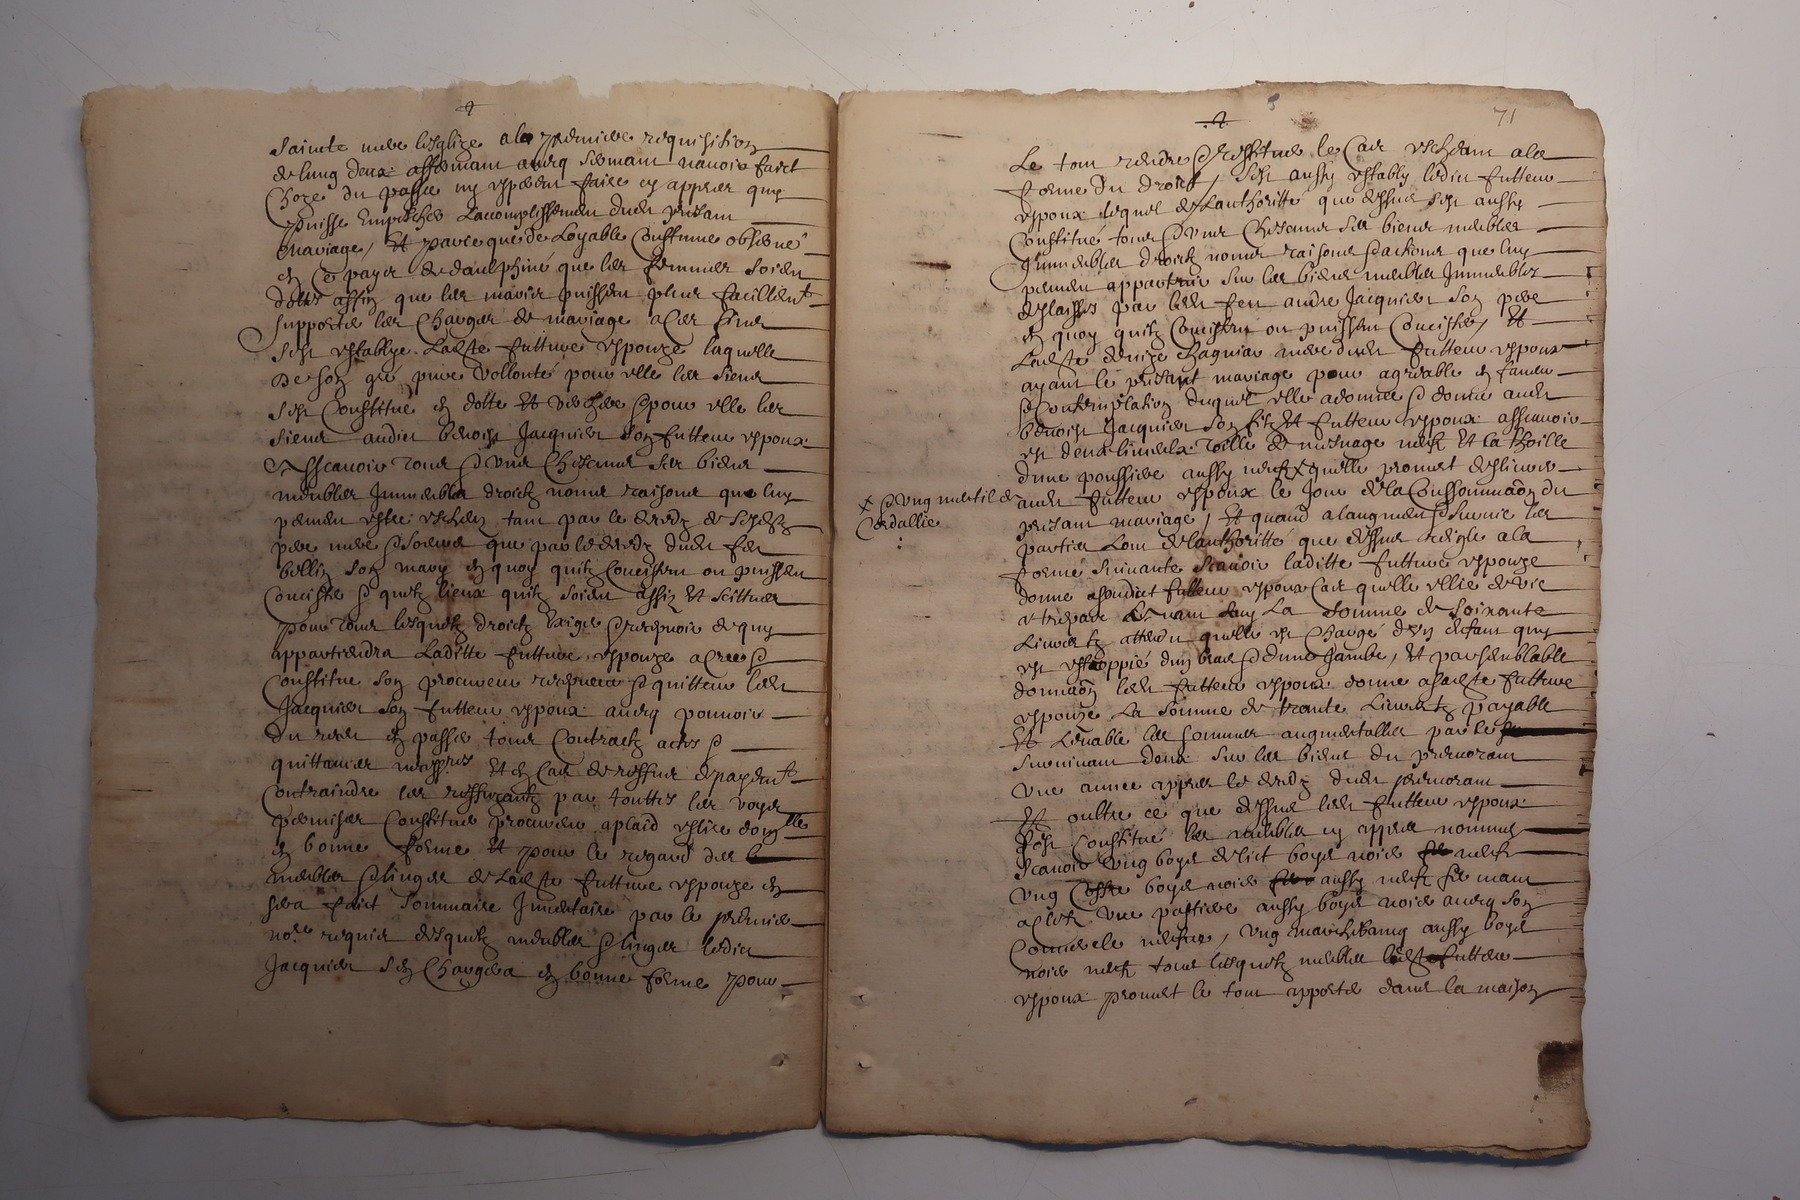 saincte mere lesglize a la premiere requisition
de lung deux affermant avecq serment navoir faict
choze du passé ny esperer faire cy appres que
puisse empescher lacomplissement dudit presant
mariage, Et parce que de loyable coustume observé
en ce pays de daulphiné que les femmes soient
dottes affin que les maris puissent pleus facillemt
supporter les charges de mariage a ces fins
sest establye ladte future espouze laquelle
de son gré pure vollonté pour elle les siens
sest constitué en dotte et verchere et pour elle les
siens audict benoist Jacquier son futteur espoux
Asscavoir tous et uns chescuns ses biens
meubles Immeubles droictz noms raisons que luy
peuvent estre escheus tant par le deces de ses
pere mere et soeurs que par le deces dudit feu
bellin son mary en quoy quilz concistent ou puissent
concister et quelz lieux quilz soient assis et scittues
pour tous lesquelz droictz exiger et recepvoir de quy
appartiendra laditte future espouze a cree et
constitue son procureur recepveur et quitteur ledit
Jacquier son futteur espoux avecq pouvoir
du receu en passer tous contractz actes et
quittances necesres et en cas de reffus de payemt
contraindre les reffuzantz par touttes les voyes
permises constituer procureur a plaid eslire domlle
en bonne forme et pour le regard des
meubles et linges de ladte future espouze en
sera faict sommaire Inventaire par le premier
nore requis desquelz meubles et linges ledict
Jacquier sen chargera en bonne forme pour
5
71
Le tout rendre et restituer le cas escheant a la
forme du droict, sest aussy estably ledict futteur
espoux lequel de lauthoritté que dessus sest aussy
constitué tous et uns chescuns ses biens meubles
Immeubles droictz noms raisons et actions que luy
peuvent appartenir sur les biens meubles Immeubles
delaisses par ledit feu andre Jacquier son pere
en quoy quilz concistent ou puissent concister, Et
ladte denize chagnias mere dudit futteur espoux
ayant le presant mariage pour agreable en faveur
et contemplation duquel elle a donné et donne audit
benoist Jacquier son filz et futteur espoux asscavoir
est deux linceulx toille de mesnage neufz et la thoille
dune poussiere aussy neufz X quelle promet deslivrer
audit futteur espoux le jour de la conssommaon du
presant mariage, Et quand a laugment et survie les
parties lont de lauthoritté que dessus reigle a la
forme suivante scavoir laditte future espouze
donne a sondict futteur espoux cas quelle ellie de vie
a trepas devant luy la somme de soixante
livres tz attendu quelle est chargé dun enfant quy
est estroppié dun bras et dune jambe, et par semblable
donnaon ledit futteur espoux donne a ladte future
espouze la somme de trante livres tz payable
Et les sommes augmentalles par le
survivant deux sur les biens du premorant
une annee appres le deces dudit premorant
Et oultre ce que dessus ledit futteur espoux
sest constitué les meubles cy appres nommes
scavoir ung boys de lict boys noir neufz
ung coffre boys noir aussy neufz fermant
a clefz une pastiere aussy boys noir avecq son
couvercle neufve, ung marchepang aussy boys
noir neufz tous lesquelz meubles ledit futteur
espoux promet le tout apporter dans la maison
X et ung mantil de
cordallie